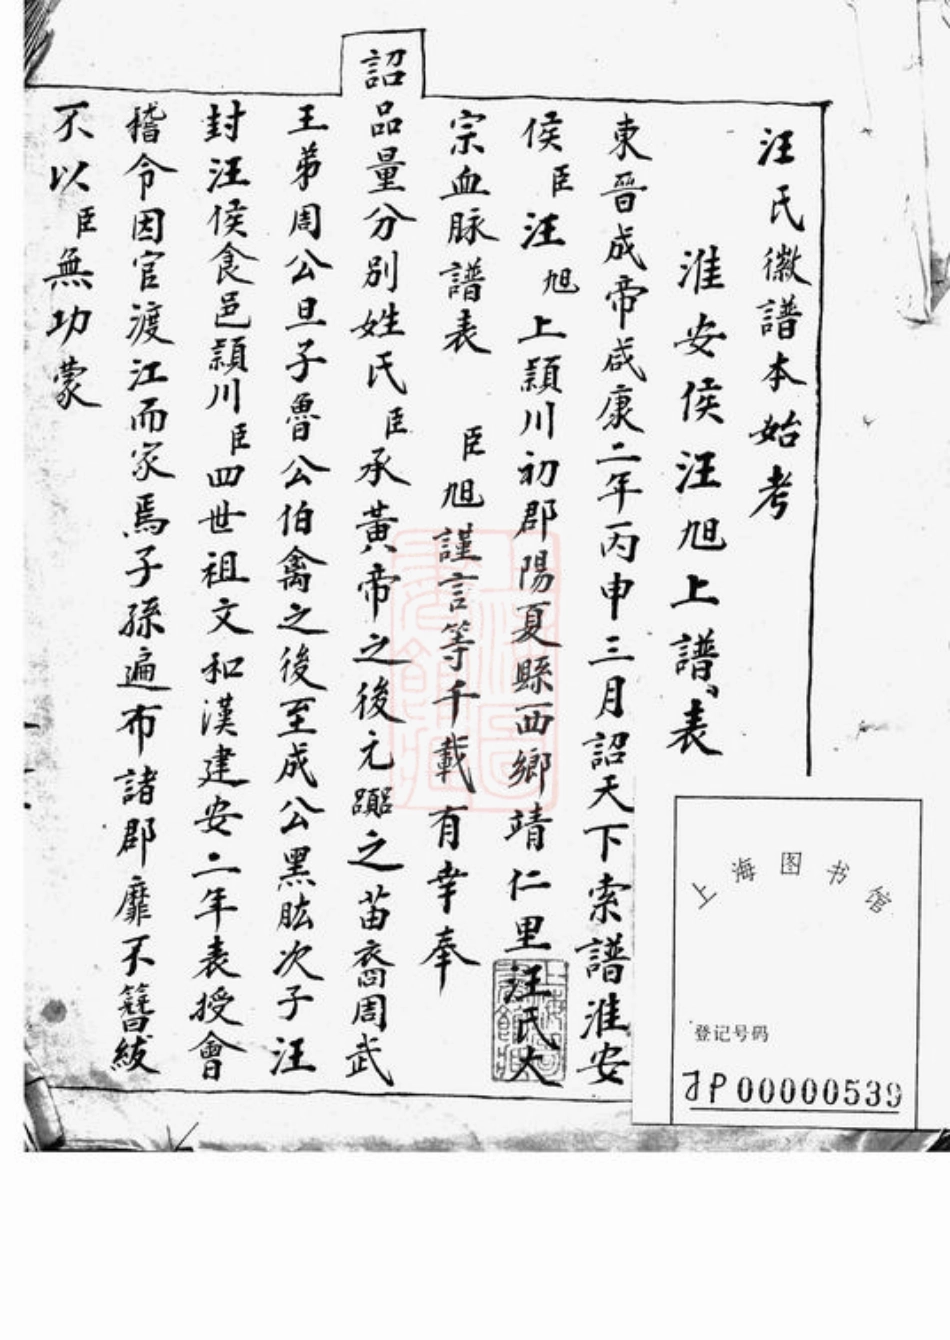 汪氏徽譜本始考
淮安侯汪旭上譜表
東晉成帝咸康二年丙申三月詔天下索譜淮安
侯臣汪旭上潁川初郡陽夏縣西鄉靖仁里汪氏大
宗血脉譜表　臣旭謹言等千載有幸奉
詔品量分別姓氏臣承黃帝之後元囂之苗裔周武
王弟周公旦子魯公伯禽之後至成公黑肱次子汪
封汪侯食邑潁川臣四世祖文和漢建安二年表授會
稽令因官渡江而家焉子孫遍布諸郡靡不簪紱
不以臣無功蒙
上海图书馆
登记号码
JP 00000539